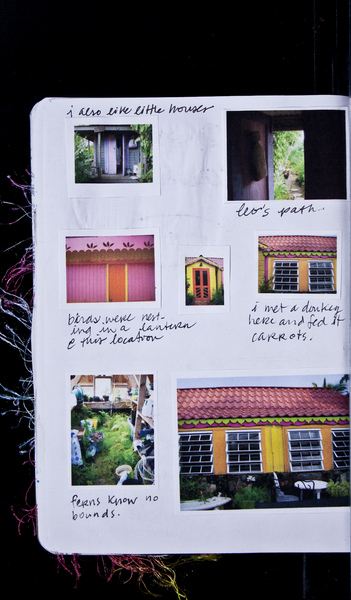 i also like little houses
leo's path.
birds were nest-
ing in a lantern
@ this location
i met a donkey
here and fed it
carrots.
ferns know no
bounds.